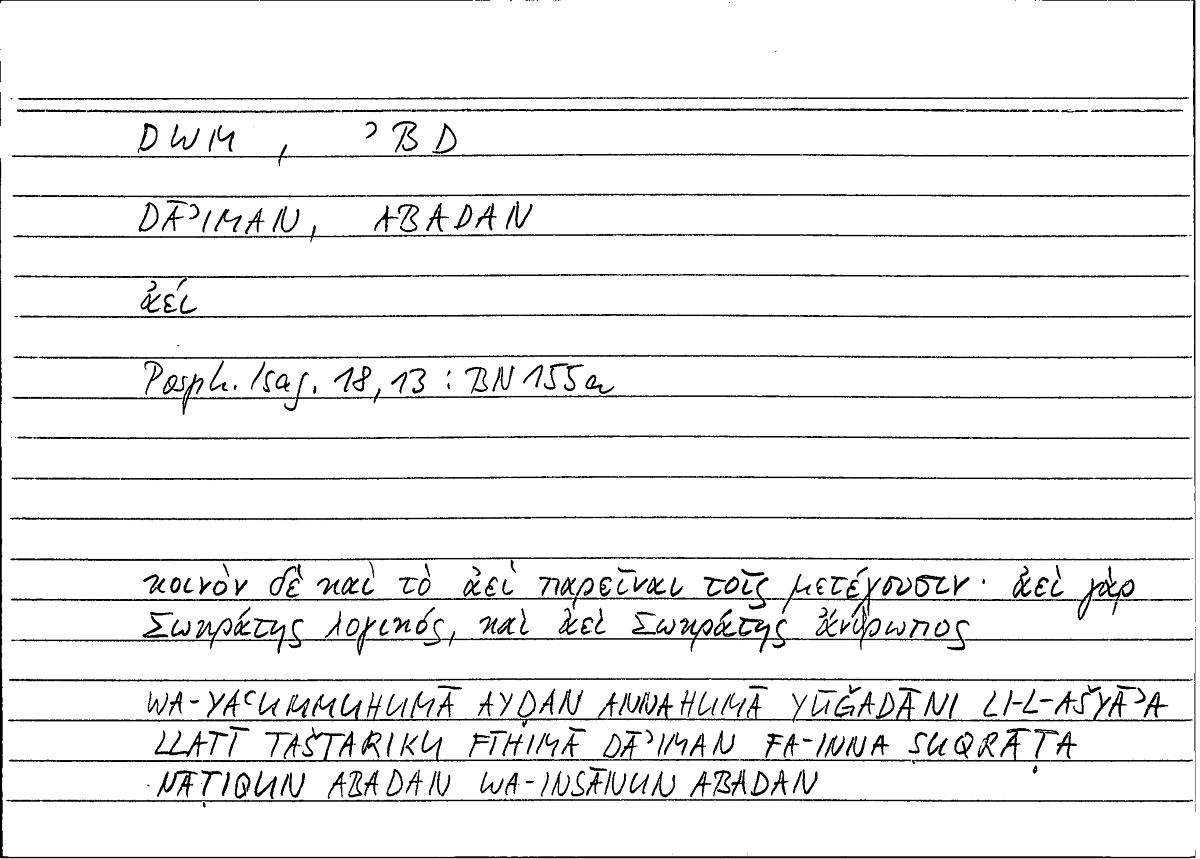 DWM , ʾBD
DĀʾIMAN, ABADAN
ἀεί
Porph. Isag. 18,13 : BN 155a
κοινὸν δὲ καὶ τὸ ἀεὶ παρεῖναι τοῖς μετέχουσιν· ἀεὶ γὰρ
Σωκράτης λογικός, καὶ ἀεὶ Σωκράτης ἄνθρωπος
WA-YAʿUMMUHUMĀ AYḌAN ANNAHUMĀ YŪǦADĀNI LI-L-AŠYĀʾA
LLATĪ TAŠTARIKU FĪHIMĀ DĀʾIMAN FA-INNA ṢUQRĀṬA
NĀṬIQUN ABADAN WA-INSĀNUN ABADAN